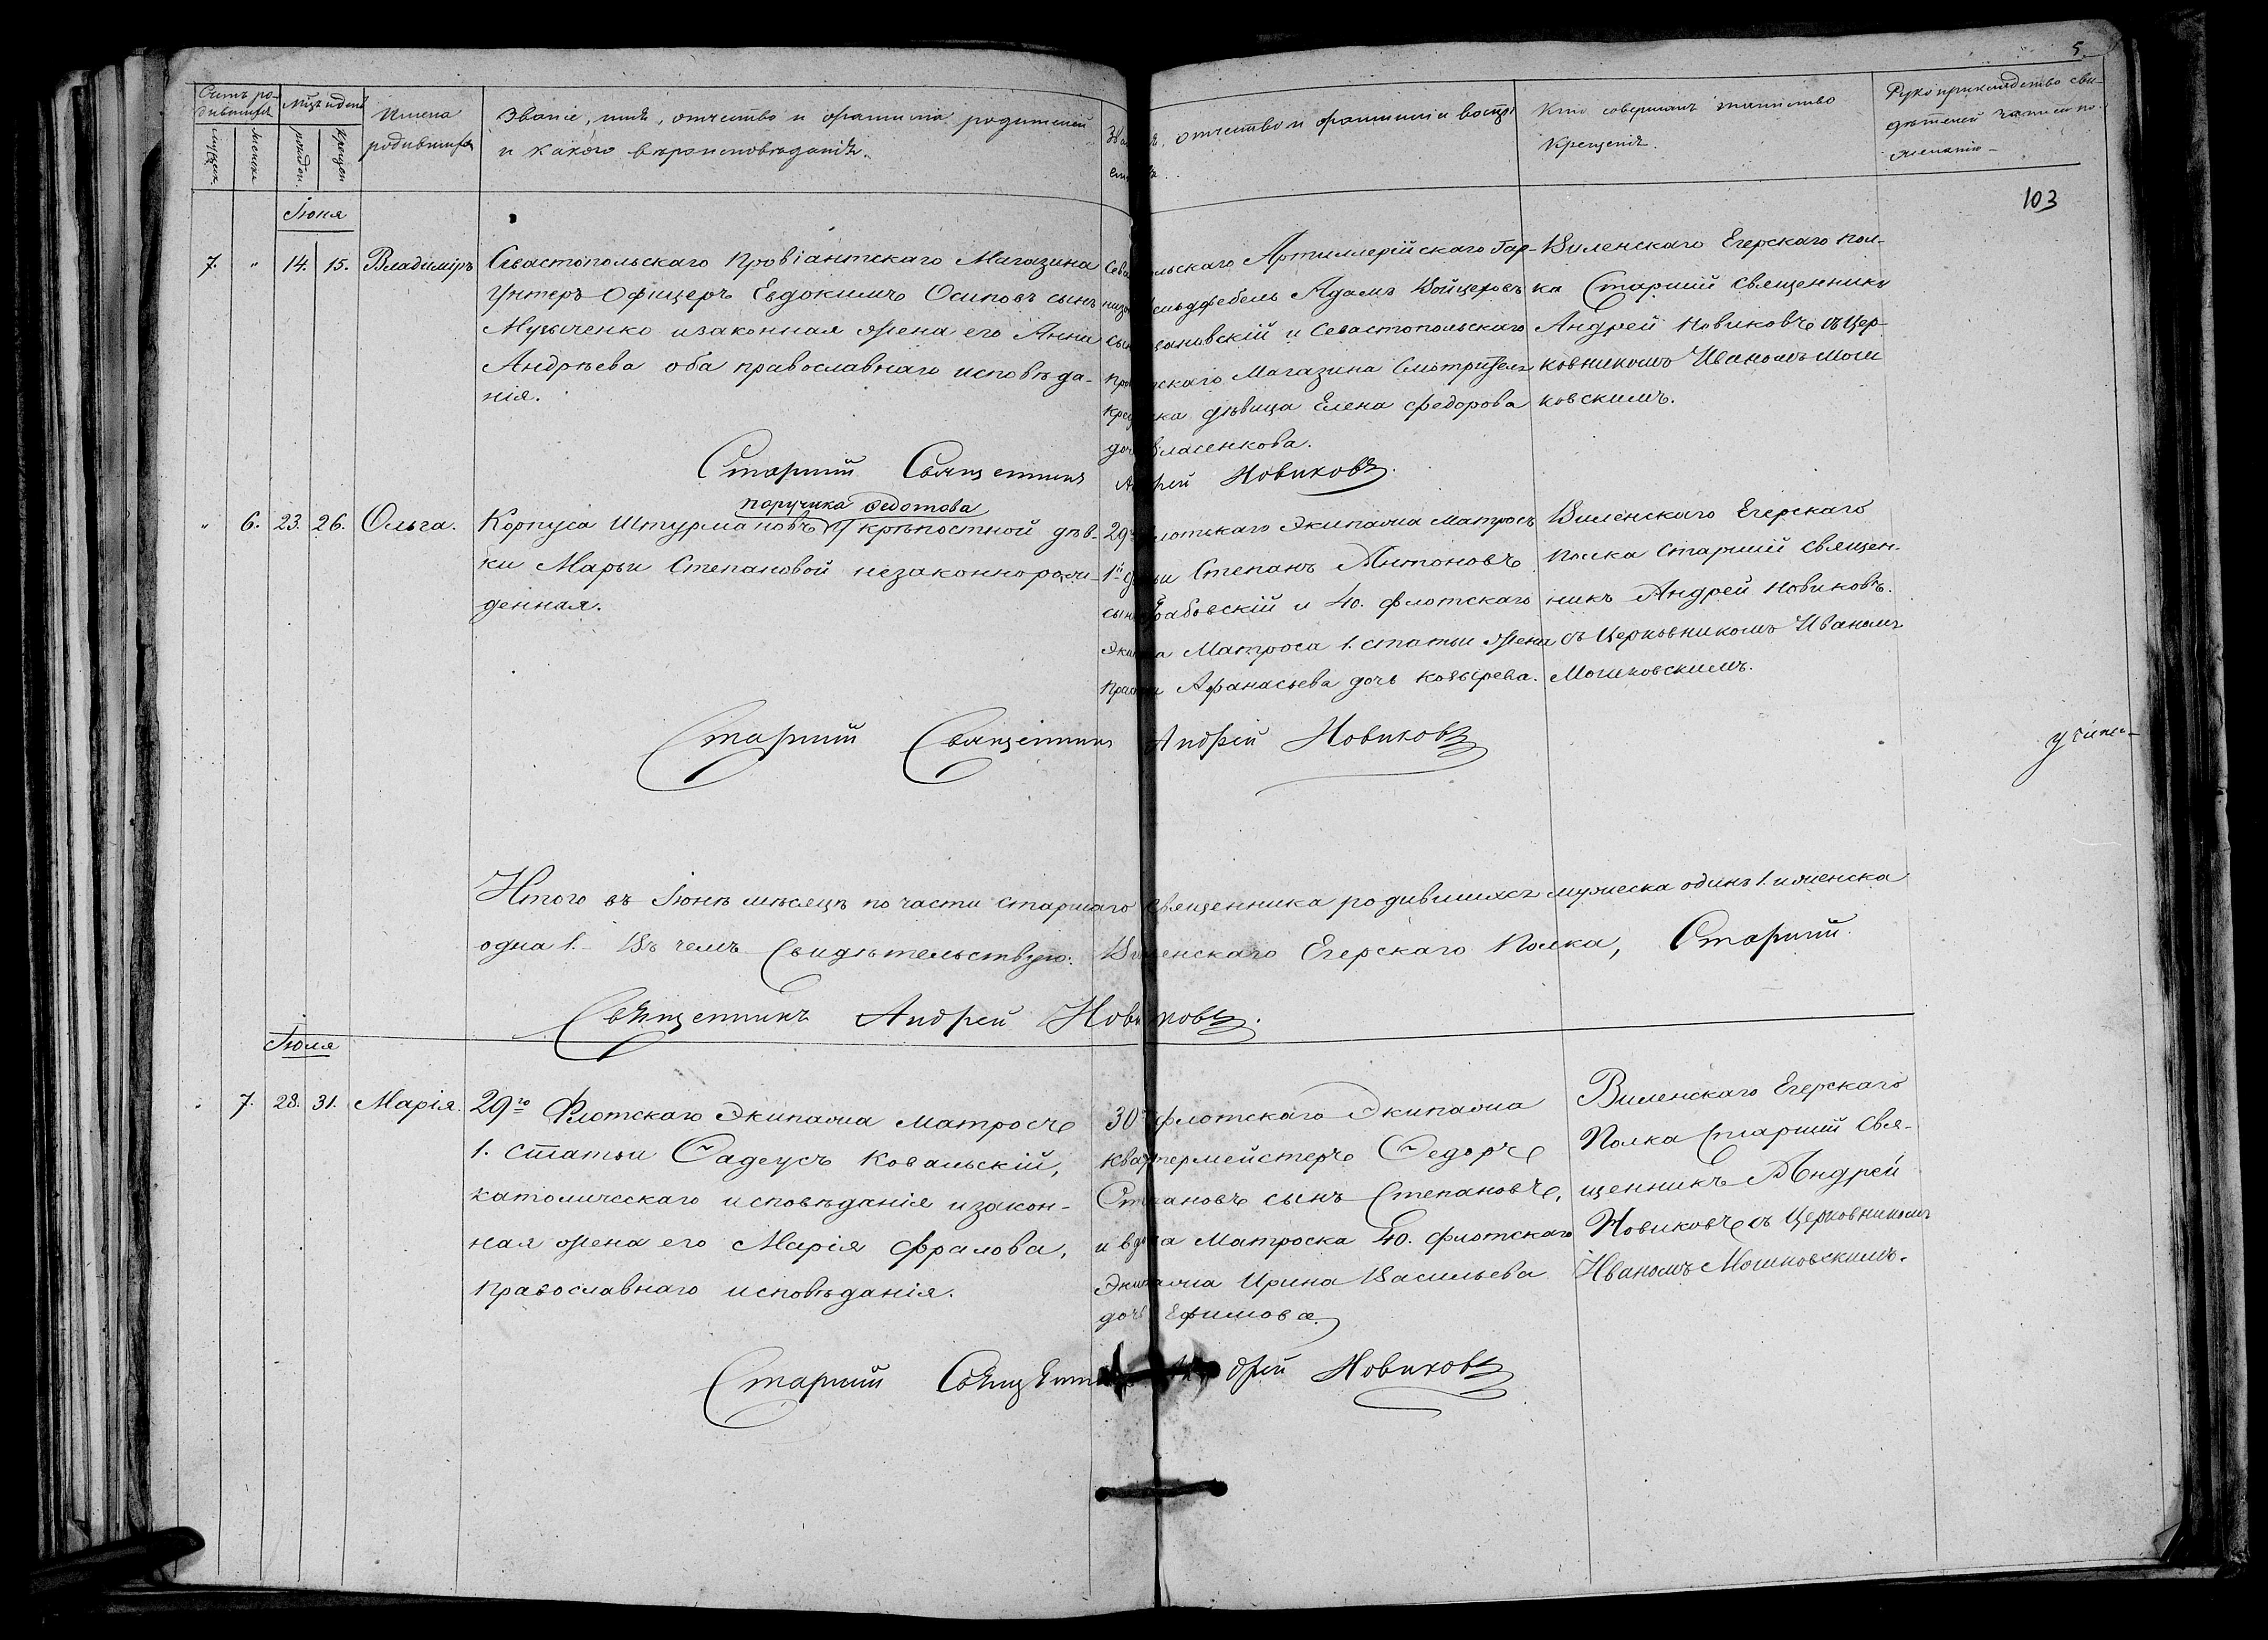 5.
Счетъ ро-
дившихся
Мѣсяцъ и день
Имена
родившихся
Званіе, имя, отчество и фамилія родителей
и какого вѣроисповѣданія.
отчество и фамилія воспрі
Кто совершалъ таинство
Крещенія.
Рукоприкладство сви-
дѣтелей записи по
желанію
мужеска
женска
рожден.
крещен.
103
Іюня
7. " 14. 15. Владиміръ
Севастопольскаго Провіантскаго Магазина
Унтеръ-Офицеръ Евдокимъ Осиповъ сынъ
и законная жена его Анна
Андрѣева оба православнаго исповѣда-
нія.
Сева льскаго Артиллерійскаго Гар-
низ ельдфебель Адамъ Войцеховъ
сын ановскій и Севастопольскаго
пров скаго Магазина Смотрителя
крес ка дѣвица Елена Федорова
доч Власенкова.
Виленскаго Егерскаго Пол-
ка Старшій Священникъ
Андрей Новиковъ съ Цер-
ковникомъ Иваномъ Моги
ковскимъ.
Старшій Священникъ Андрей Новиковъ.
" 6. 23. 26. Ольга.
поручика Федотова
Корпуса Штурмановъ крѣпостной дѣв-
ки Марьи Степановой незаконнорож-
денная.
29 лотскаго Экипажа Матросъ
1й ст ьи Степанъ Антоновъ
сынъ абовскій и 40. флотскаго
Экипажа Матроса 1. статьи жена
Афанасьева дочь Козырева.
Виленскаго Егерскаго
Полка Старшій Священ-
никъ Андрей Новиковъ.
съ Церковникомъ Иваномъ
Могиковскимъ.
Старшій Священникъ Андрей Новиковъ
Итого въ Іюнѣ мѣсяцѣ по части Старшаго Священника родившихся мужеска одинъ 1. и женска
одна 1. – Въ чемъ Свидѣтельствую: Виленскаго Егерскаго Полка, Старшій
Священникъ Андрей Новиковъ.
Іюля
" 7. 28. 31. Марія.
29го Флотскаго Экипажа Матросъ
1. Статьи Фадеусъ Ковальскій,
католическаго исповѣданія и закон-
ная жена его Марія Фралова,
Православнаго исповѣданія.
30 флотскаго Экипажа
квартермейстеръ Федоръ
Степановъ сынъ Степановъ,
и вдова Матроска 40. флотскаго
Экипажа Ирина Васильева
дочь Ефимова
Виленскаго Егерскаго
Полка Старшій Свя-
щенникъ Андрей
Новиковъ съ Церковникомъ
Иваномъ Могиковскимъ.
Старшій Священникъ Андрей Новиковъ